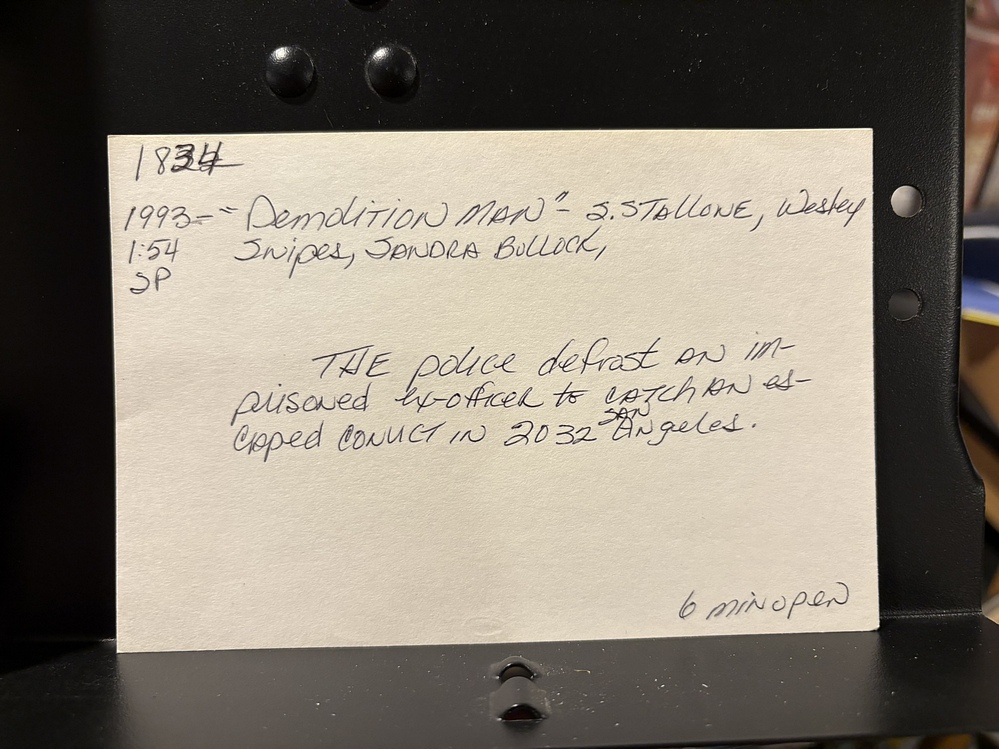 1834
1993= "Demolition Man" - S. Stallone, Wesley
1:54 Snipes, Sandra Bullock,
SP
The police defrost an im-
prisoned ex-officer to catch an es-
caped convict in 2032 San Angeles.
6 min open